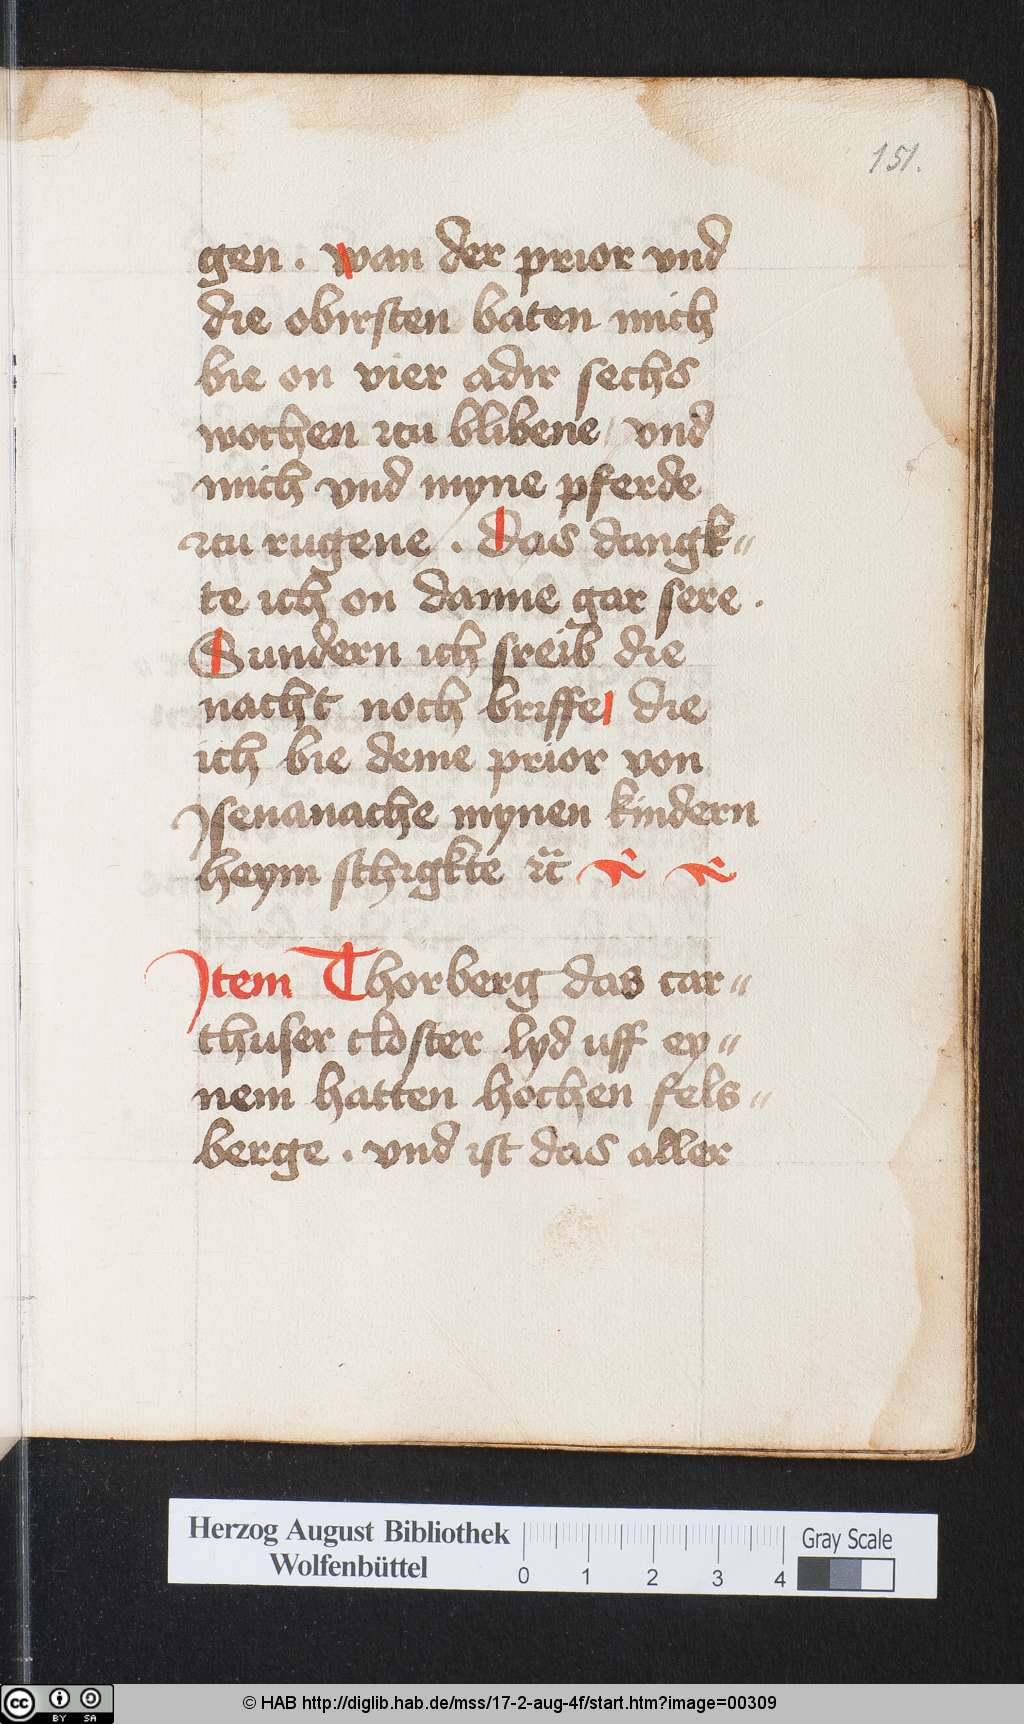 151.
gen . wan der prior vnd
die obirsten baten mich
bie on vier adir sechs
wochen zcu blibene / vnd
mich vnd myne pferde
zcu rugene . Das dangk=
te ich on danne gar sere .
Sundern ich sreib die
nacht noch briffe / die
ich bie deme prior von
Jsenanache mynen kindern
heym schigkte ꝛc̈
Jtem Thorberg das car=
thuser closter lyd uff ey=
nem hatten hochen fels=
berge . vnd ist das aller
Herzog August Bibliothek
Wolfenbüttel
0 1 2 3 4
Gray Scale
cc BY SA
© HAB http://diglib.hab.de/mss/17-2-aug-4f/start.htm?image=00309